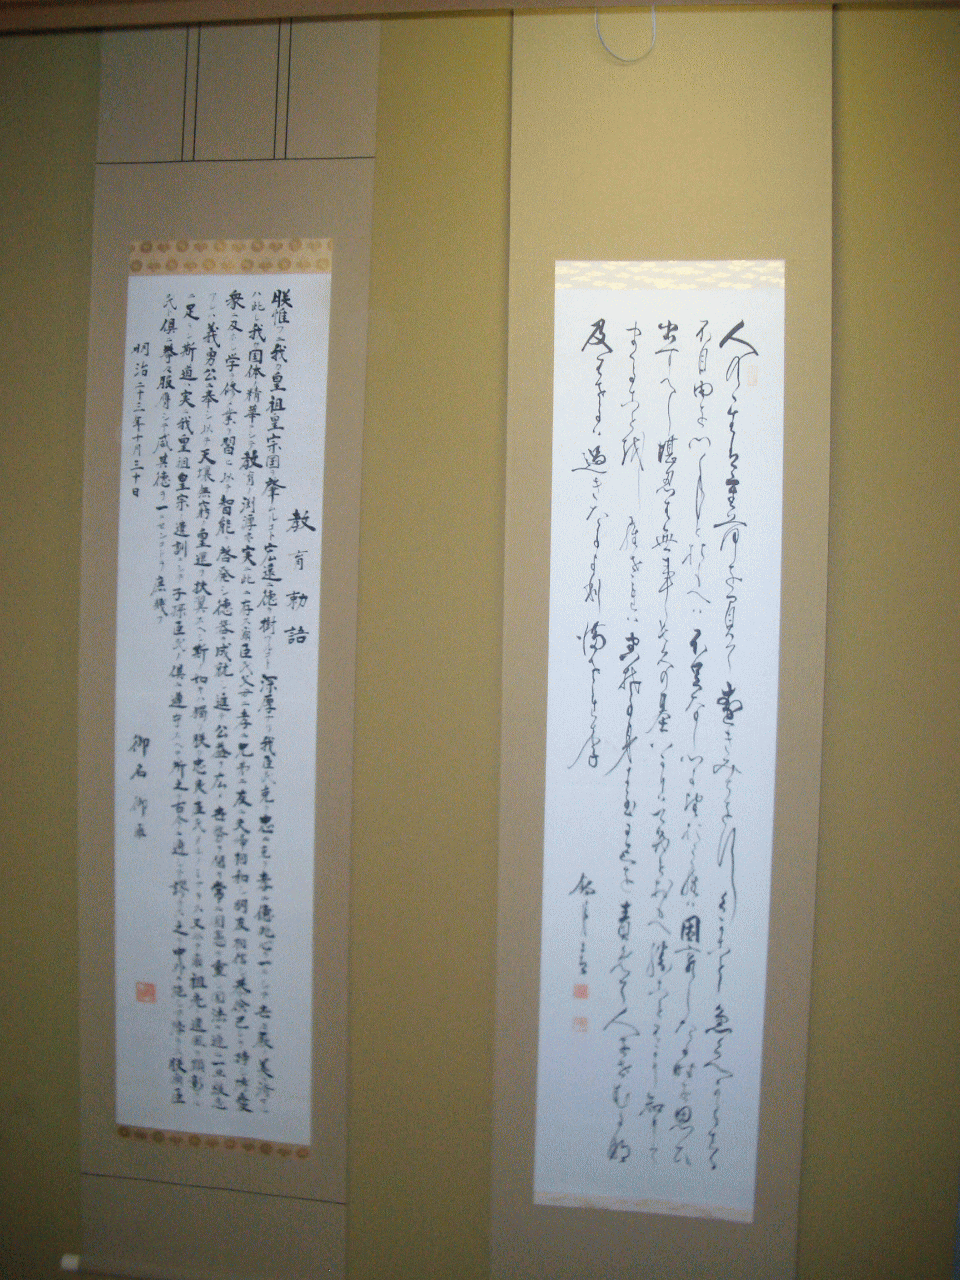 人の一生は重荷を負て遠きみちを行かことし急くへからす
不自由を常とおもへは不足なし心に望おこらは困窮したる時を思ひ
出すへし堪忍は無事長久の基いかりは敵とおもへ勝ことはかり知りて
まくることを知らされは害其身にいたるおのれを責て人をせむるな
及はさるは過きたるより勝れり
教育勅語
朕惟フニ我カ皇祖皇宗国ヲ肇ムルコト宏遠ニ徳ヲ樹ツルコト深厚ナリ我臣民克ク忠ニ克ク孝ニ億兆心ヲ一ニシテ世々厥ノ美ヲ済セル
ハ此レ我カ国体ノ精華ニシテ教育ノ淵源亦実ニ此ニ存ス爾臣民父母ニ孝ニ兄弟ニ友ニ夫婦相和シ朋友相信シ恭倹己レヲ持シ博愛
衆ニ及ホシ学ヲ修メ業ヲ習ヒ以テ智能ヲ啓発シ徳器ヲ成就シ進テ公益ヲ広メ世務ヲ開キ常ニ国憲ヲ重シ国法ニ遵ヒ一旦緩急
アレハ義勇公ニ奉シ以テ天壌無窮ノ皇運ヲ扶翼スヘシ斯ノ如キハ獨リ朕カ忠良ノ臣民タルノミナラス又以テ爾祖先ノ遺風ヲ顕彰スル
ニ足ラン斯ノ道ハ実ニ我カ皇祖皇宗ノ遺訓ニシテ子孫臣民ノ倶ニ遵守スヘキ所之ヲ古今ニ通シテ謬ラス之ヲ中外ニ施シテ悖ラス朕爾臣
民ト倶ニ拳々服膺シテ咸其徳ヲ一ニセンコトヲ庶幾フ
明治二十三年十月三十日
御名御璽